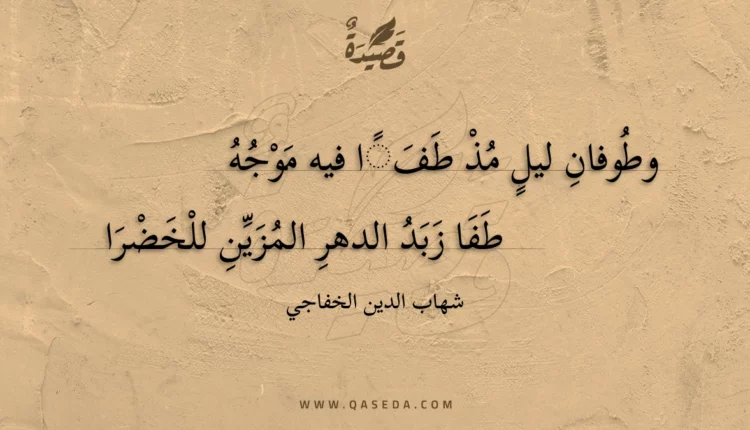 قَصِيدَةٌ
وطُوفانِ ليلٍ مُذْ طَفَ ًا فيه مَوْجُهُ
طَفَا زَبَدُ الدهرِ المُزَيِّنِ للْخَضْرَا
شهاب الدين الخفاجي
WWW.QASEDA.COM